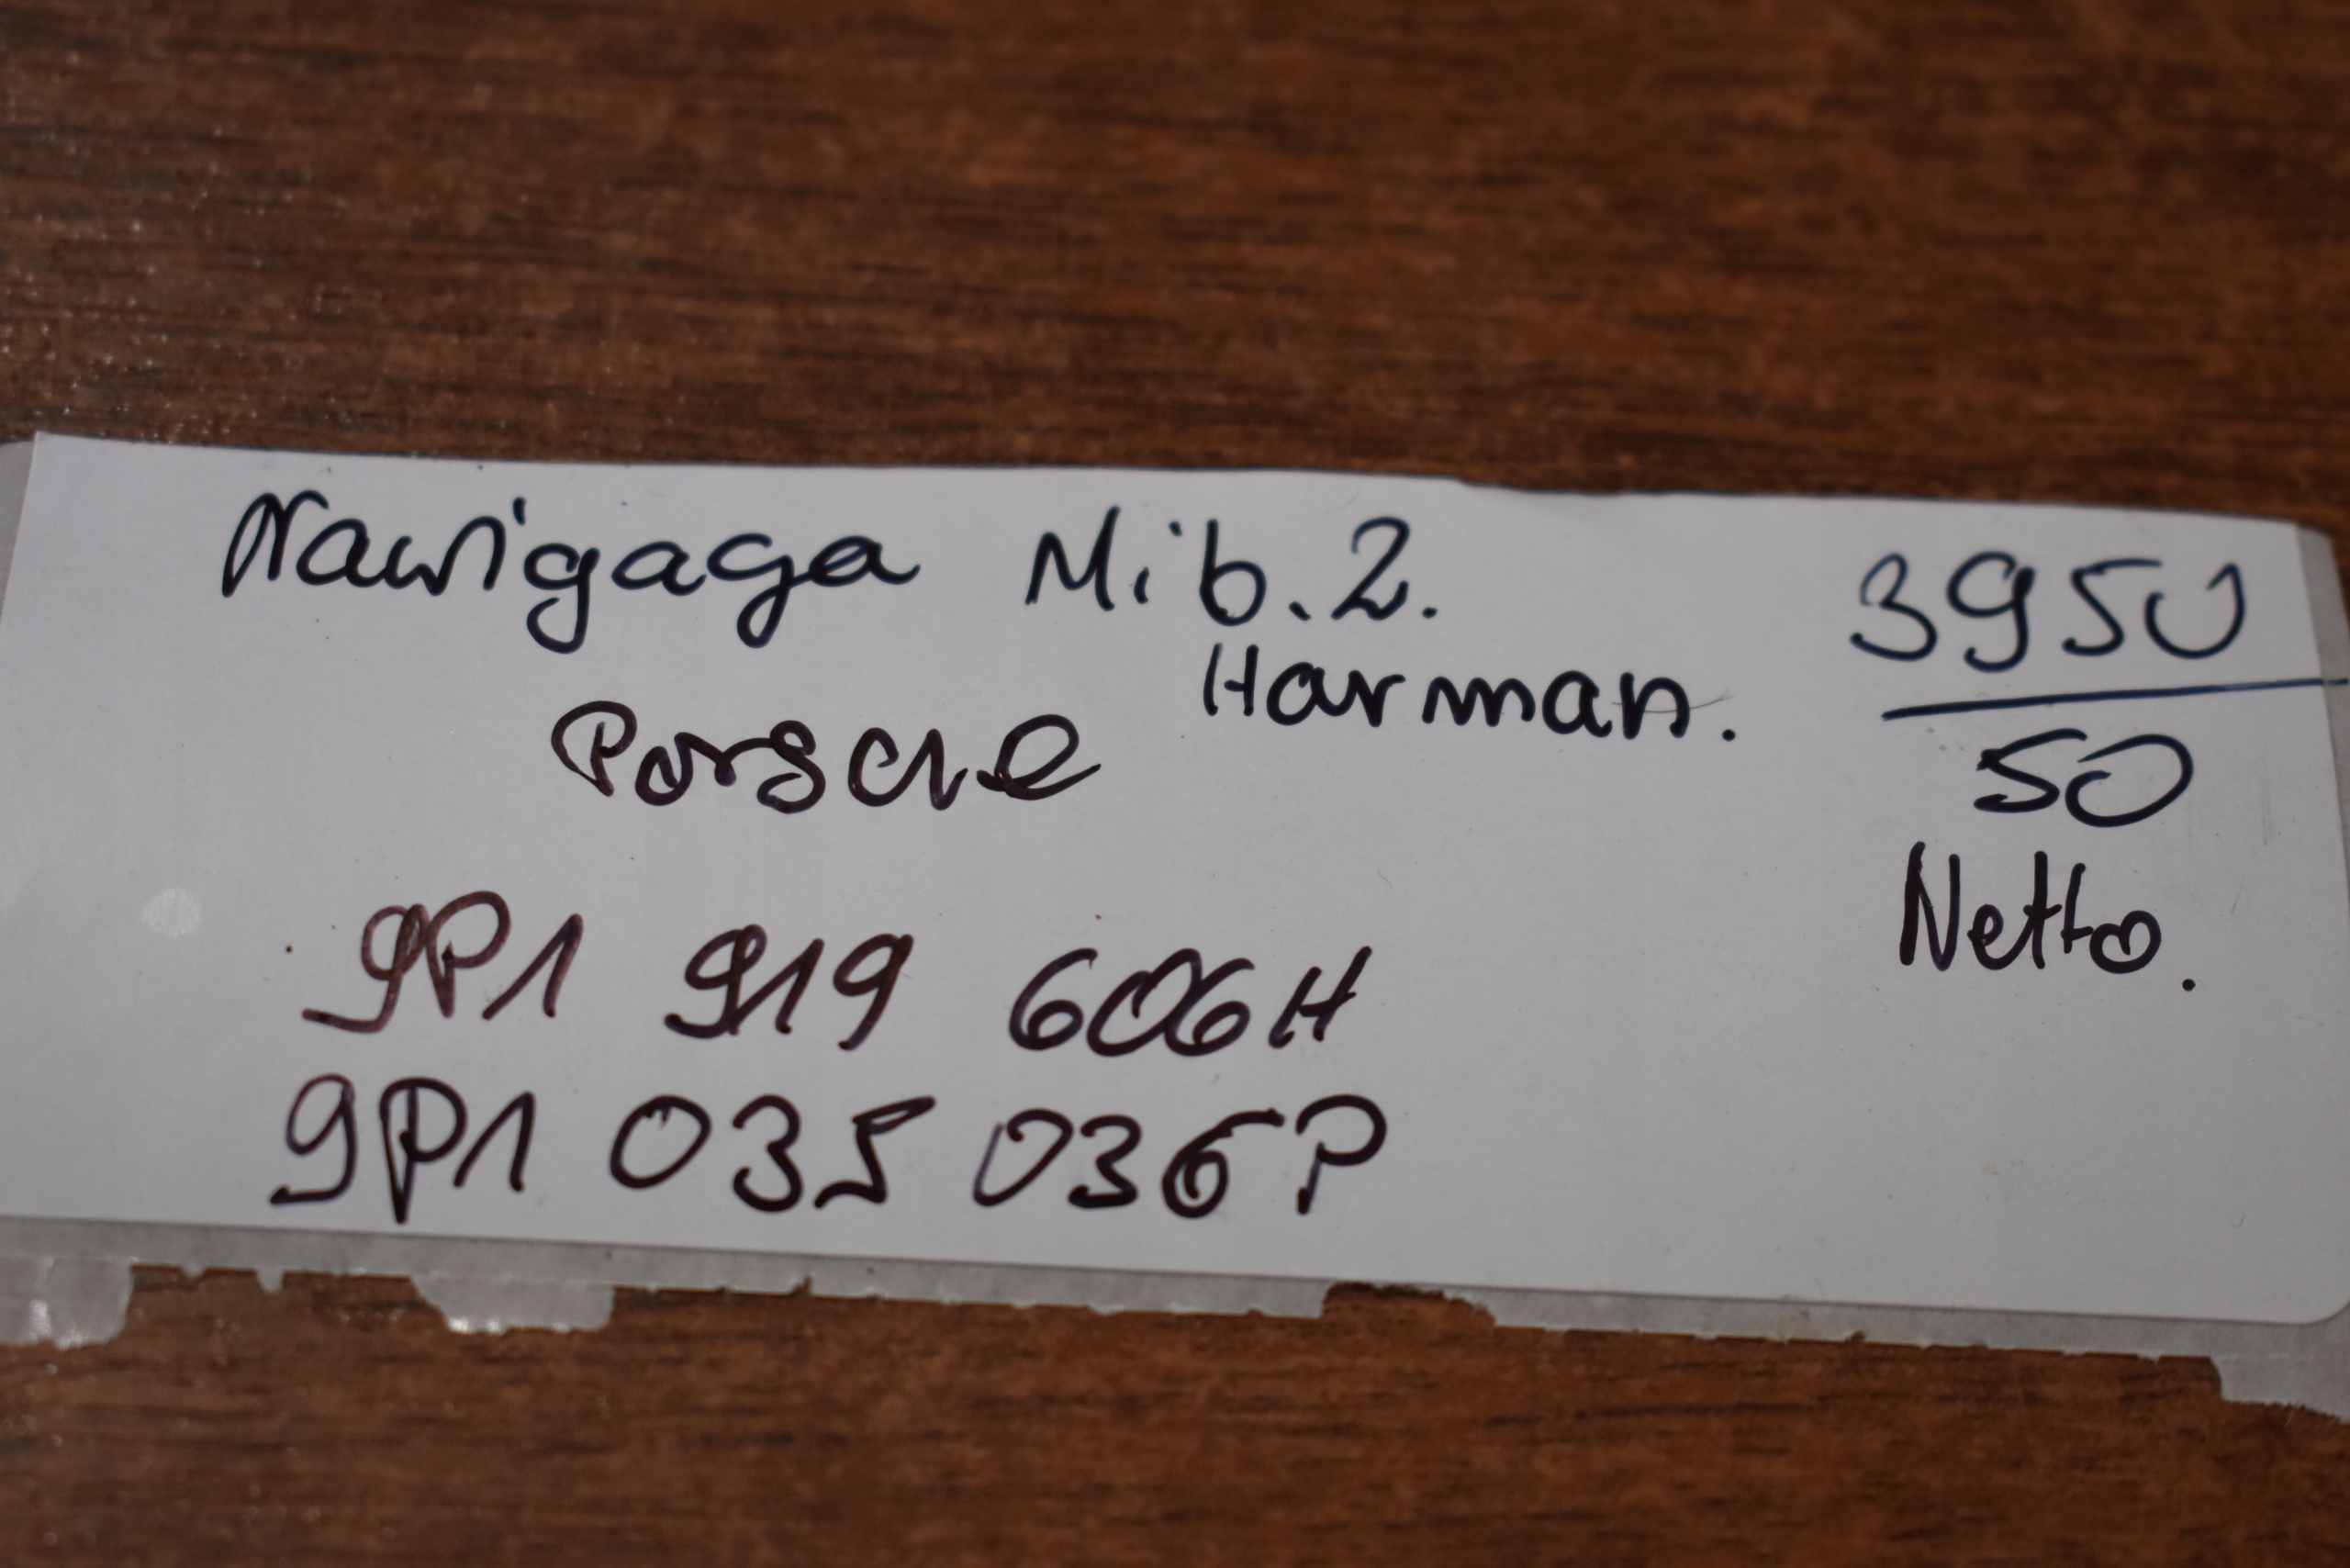 Nawigaga Mib.2.
Harman.
Porsche
9P1 919 606H
9P1 035 036P
3950
50
Netto.